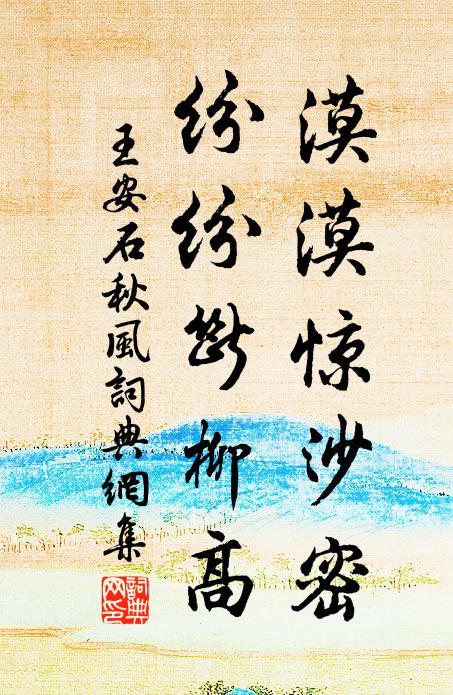 漠漠惊沙密
纷纷断柳高
王安石秋風詞典網集
詞典